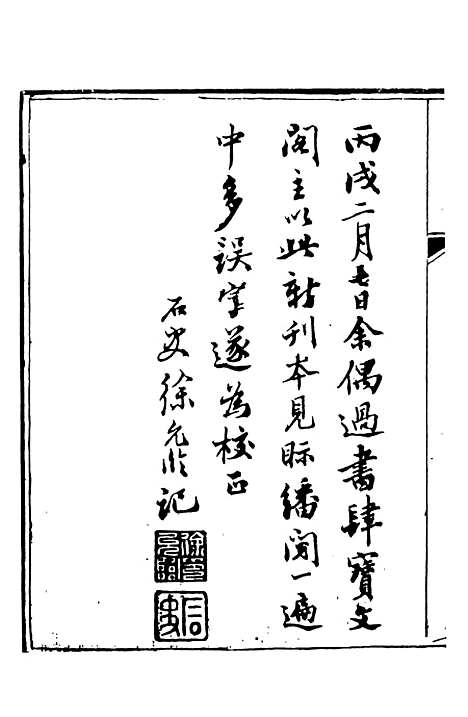 丙戌二月日余偶過書肆寶文
閣主以此新刊本見眎繙閱一遍
中多誤字遂為校正
石史徐允臨記